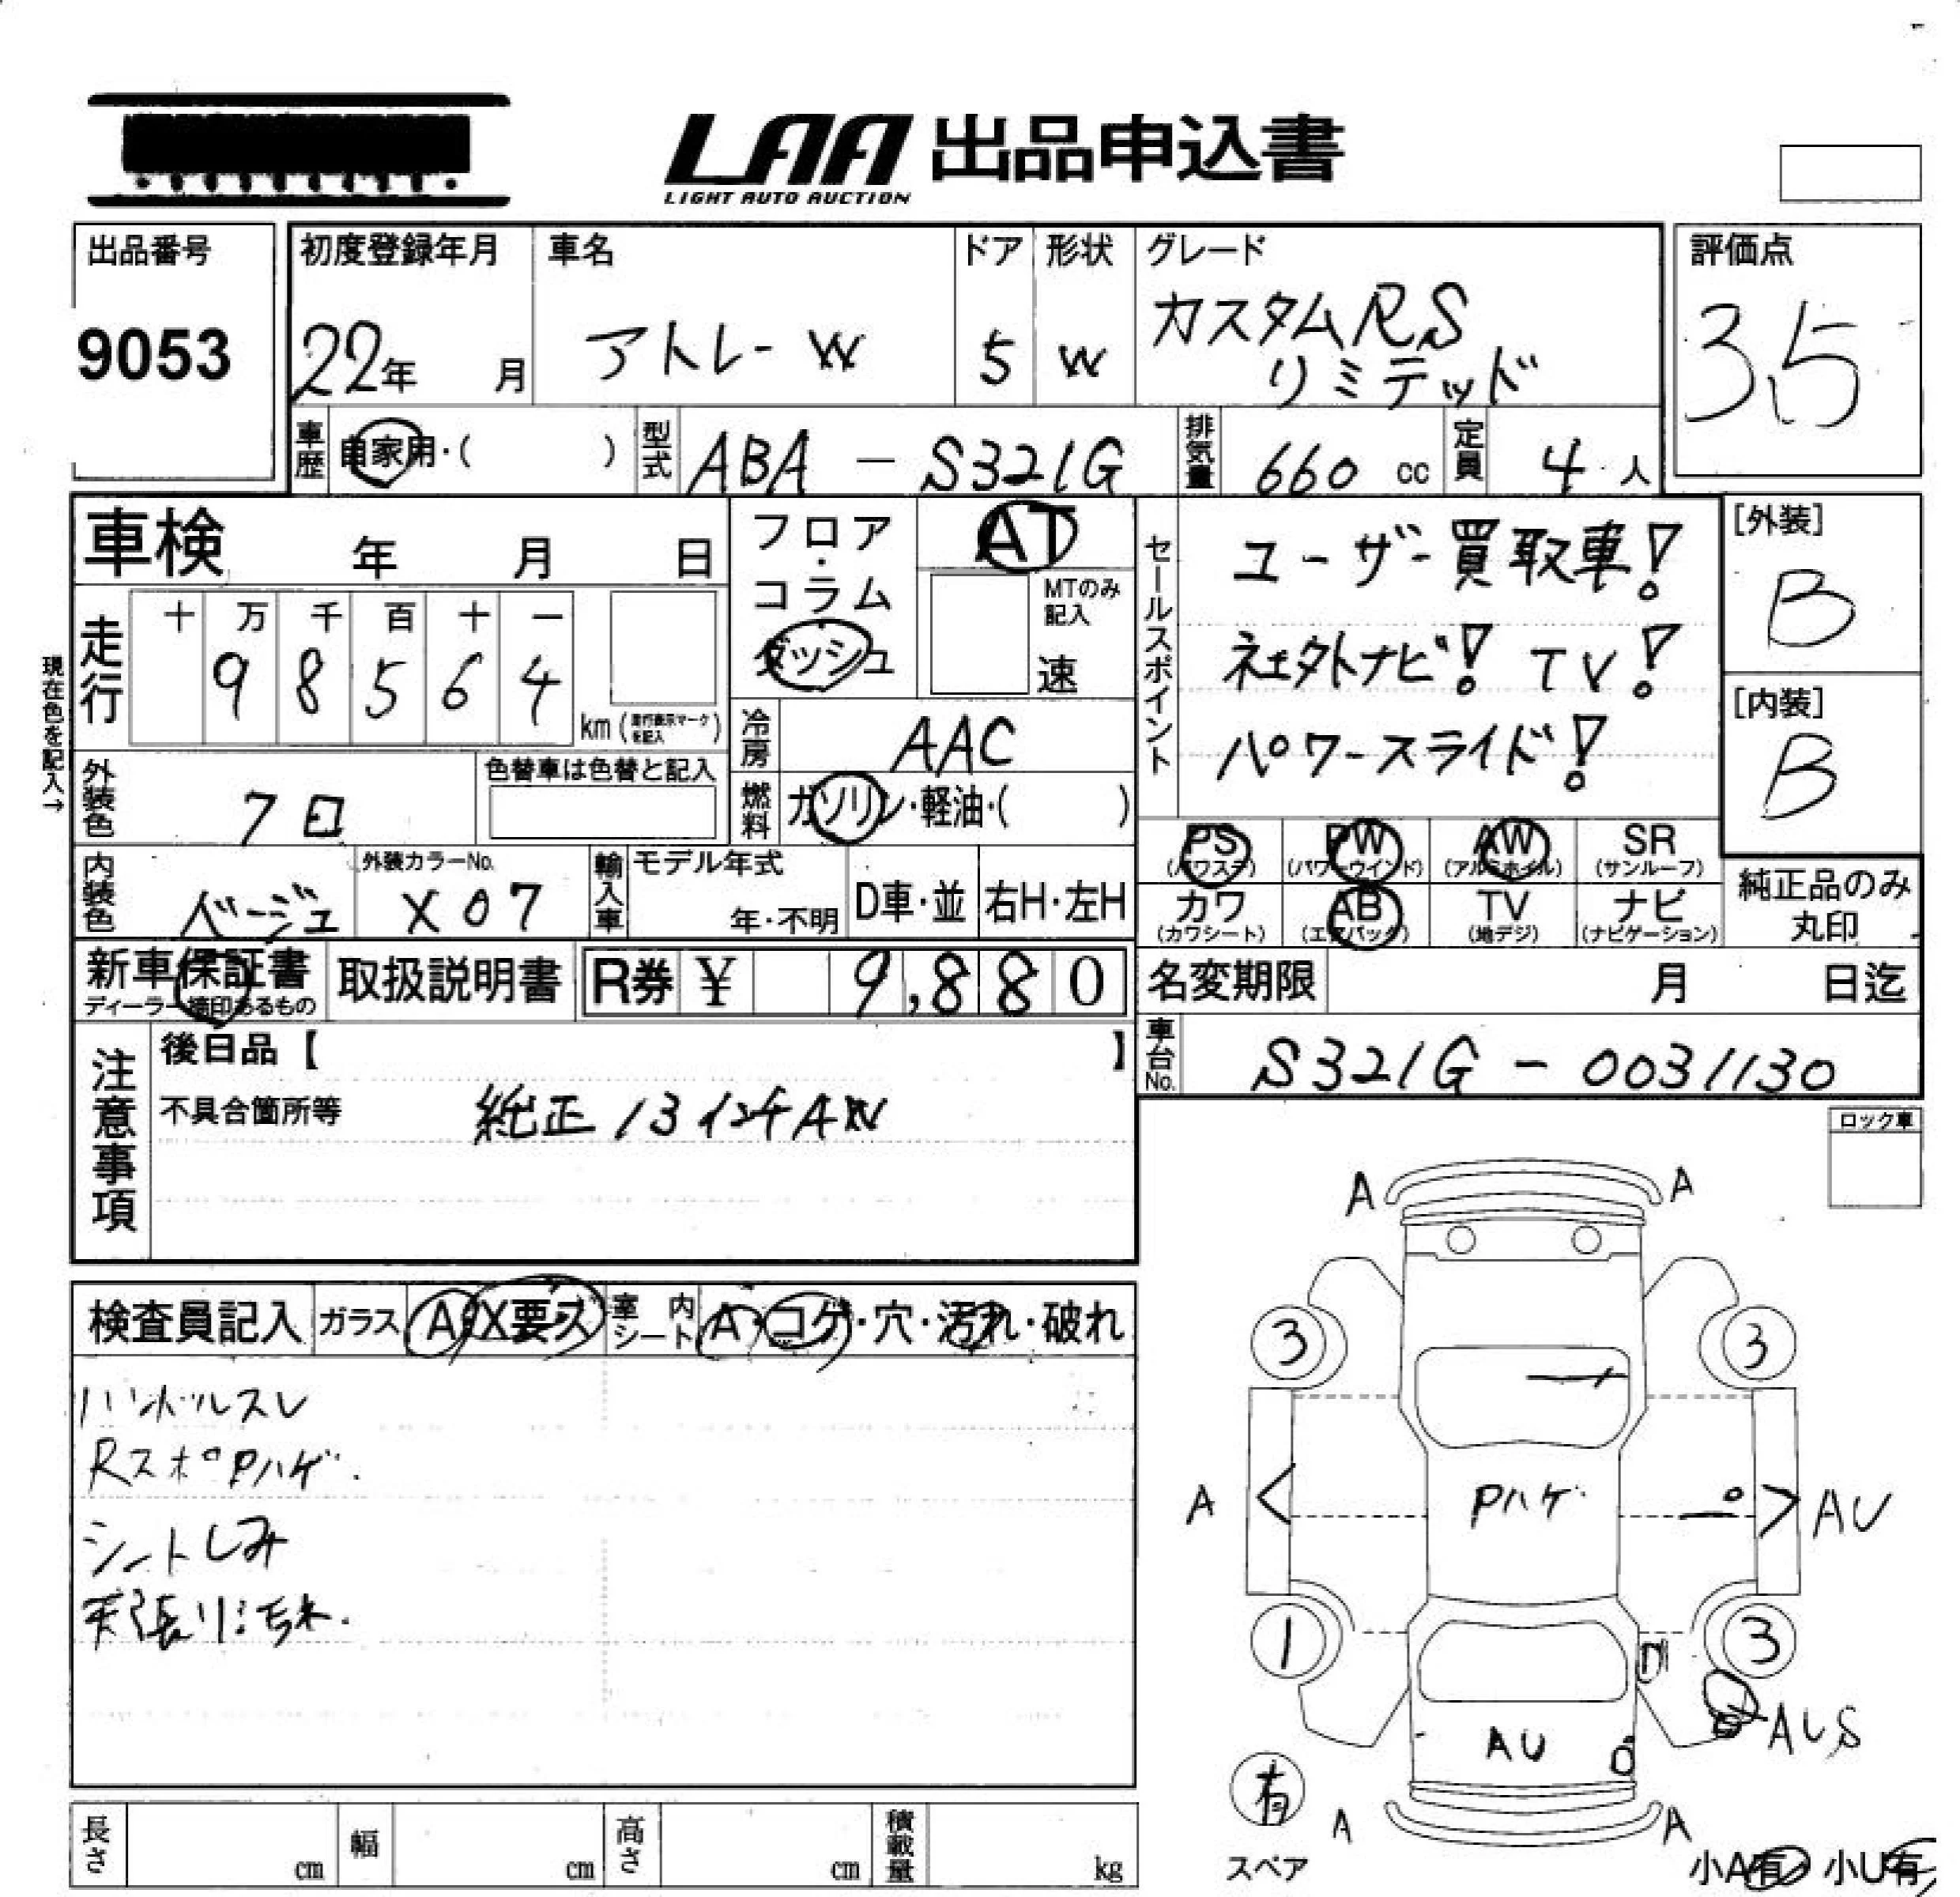 LAA 出品申込書
LIGHT AUTO AUCTION
出品番号
9053
初度登録年月
22年 月
車名
アトレーW
ドア
5
形状
W
グレード
カスタムRS
リミテッド
評価点
3.5
車歴
自家用・( )
型式
ABA - S321G
排気量
660 cc
定員
4 人
車検 年 月 日
フロア・コラム
ダッシュ
AT
MTのみ記入
速
セールスポイント
ユーザー買取車!
社外ナビ! TV!
パワースライド!
[外装]
B
[内装]
B
現在色を記入→
走行
十 万 千 百 十 一
9 8 5 6 4
km (走行表示マークを記入)
冷房
AAC
外装色
色替車は色替と記入
燃料
ガソリン・軽油・( )
PS (パワステ)
PW (パワーウインド)
AW (アルミホイル)
SR (サンルーフ)
カワ (カワシート)
AB (エアバッグ)
TV (地デジ)
ナビ (ナビゲーション)
純正品のみ丸印
内装色
ベージュ
外装カラーNo.
X07
輸入車
モデル年式
年・不明
D車・並
右H・左H
新車保証書
ディーラー捺印あるもの
取扱説明書
R券 ¥ 9,880
名変期限 月 日迄
車台No.
S321G - 0031130
注意事項
後日品【 】
不具合箇所等
純正13インチAW
ロック車
検査員記入
ガラス A・X要・ス
室内シート A・コゲ・穴・汚れ・破れ
ハンドルスレ
RスポPハゲ.
シートしみ
天張り汚れ.
A A
3 3
A Pハゲ AU
1 3
AU AUS
有
スペア
A A
小A有 小U有
長さ cm
幅 cm
高さ cm
積載量 kg